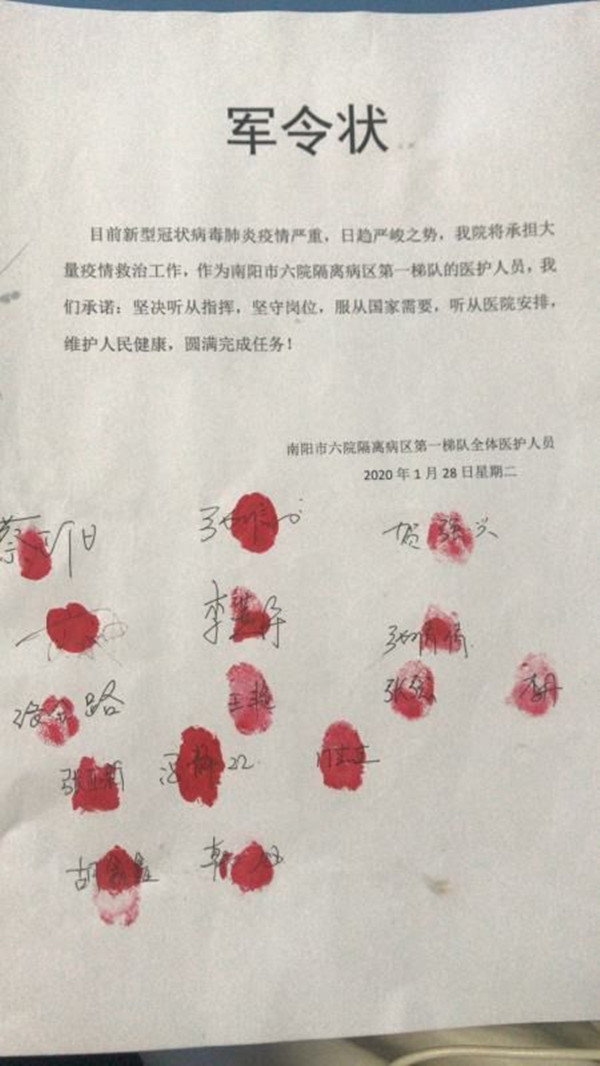 军令状
目前新型冠状病毒肺炎疫情严重，日趋严峻之势，我院将承担大
量疫情救治工作，作为南阳市六院隔离病区第一梯队的医护人员，我
们承诺：坚决听从指挥，坚守岗位，服从国家需要，听从医院安排，
维护人民健康，圆满完成任务！
南阳市六院隔离病区第一梯队全体医护人员
2020 年 1 月 28 日星期二
贺强兴
张倩倩
王艳